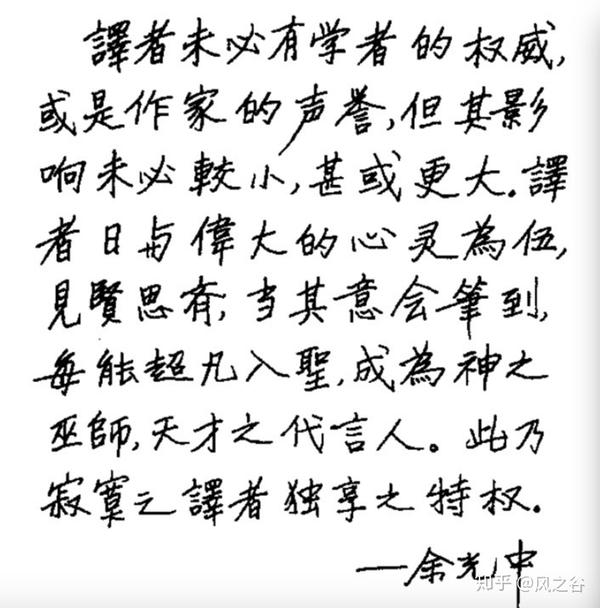 譯者未必有学者的权威,
或是作家的声誉,但其影
响未必較小,甚或更大.譯
者日与偉大的心灵為伍,
見賢思齐,当其意会筆到,
每能超凡入聖,成為神之
巫師,天才之代言人。此乃
寂寞之譯者独享之特权.
——余光中
知乎 @风之谷